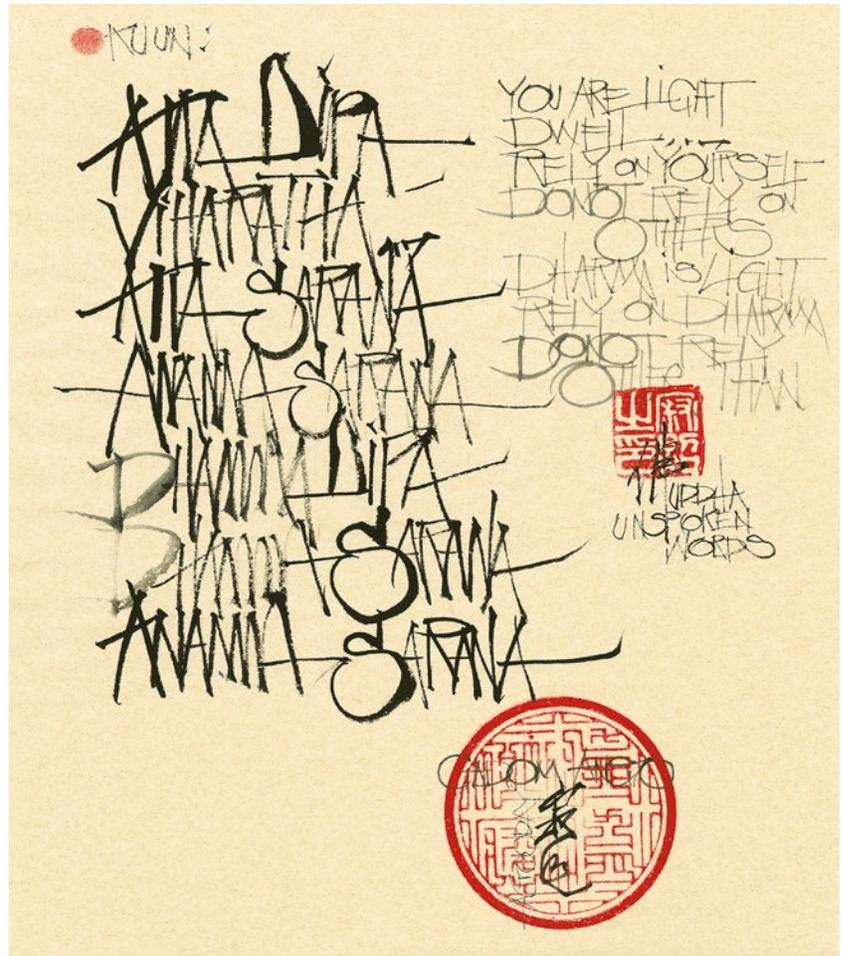 KUUN:
ATTA DIPA
VIHARATHA
ATTA SARANA
ANANNA SARANA
DHAMMA DIPA
DHAMMA SARANA
ANANNA SARANA
YOU ARE LiGHT
DWELL....
RELY ON YOURSELF
DO NOT RELY ON
OTHERS
DHARMA iS LIGHT
RELY ON DHARMA
DO NOT RELY
THAN
UNSPOKEN
WORDS